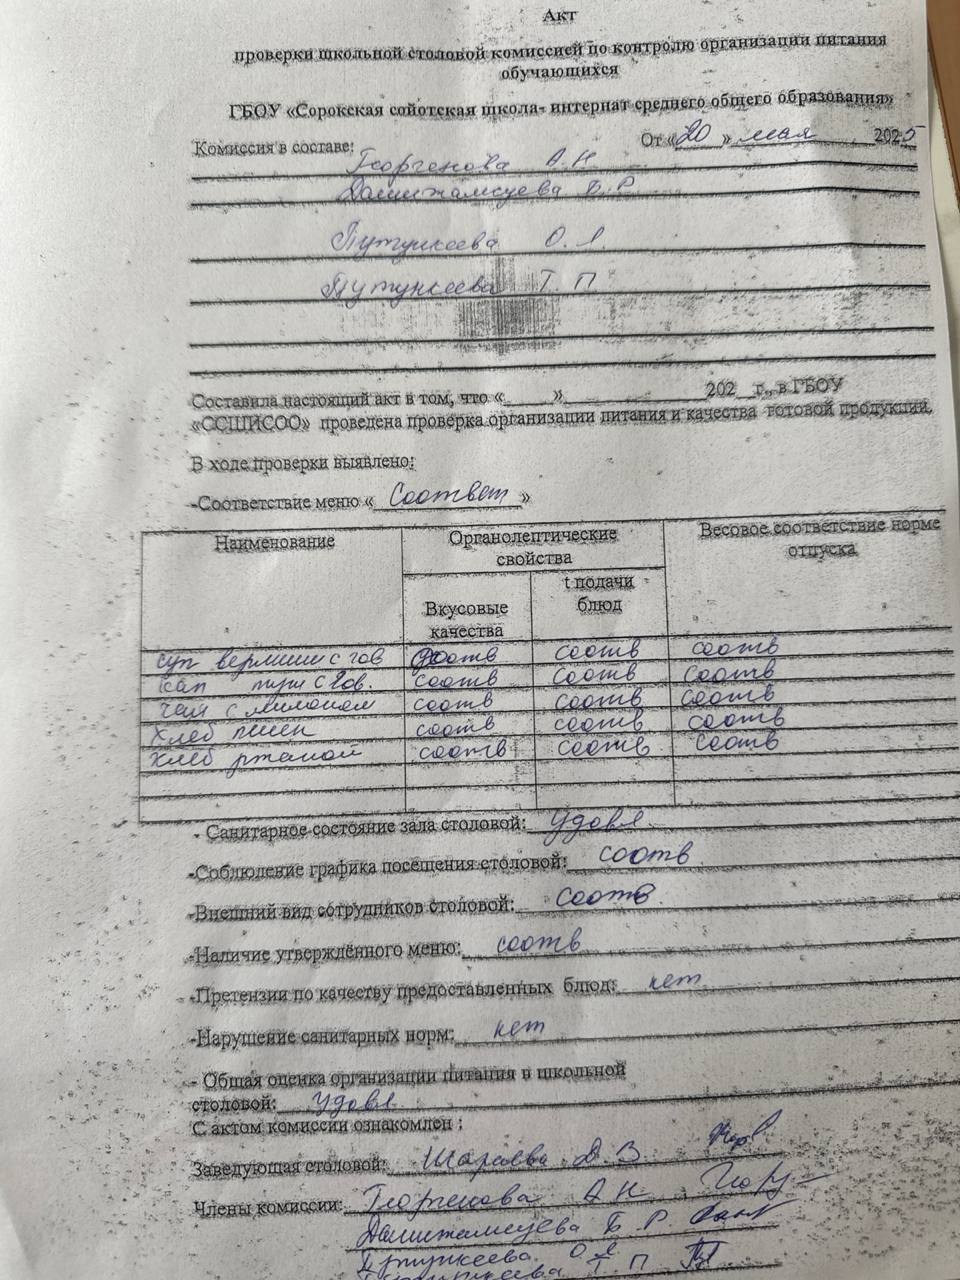 Акт
проверки школьной столовой комиссией по контролю организации питания
обучающихся
ГБОУ «Сорокская сойотская школа- интернат среднего общего образования»
От «20» мая 2025
Комиссия в составе:
А.Н
Дашижамсуева Б.Р.
Путункеева О.Я.
Путункеева Т.П
Составила настоящий акт в том, что «____»____________202__г., в ГБОУ
«ССШИСОО» проведена проверка организации питания и качества готовой продукции.
В ходе проверки выявлено:
-Соответствие меню «Соответ»
Наименование Органолептические свойства Весовое соответствие норме отпуска
Вкусовые качества t подачи блюд
суп вермиш с гов соотв соотв соотв
кап туш с гов. соотв соотв соотв
чай с лимоном соотв соотв соотв
хлеб пшен соотв соотв соотв
хлеб ржаной соотв соотв соотв
- Санитарное состояние зала столовой: удовл.
-Соблюдение графика посещения столовой: соотв
-Внешний вид сотрудников столовой: соотв.
-Наличие утверждённого меню: соотв
-Претензии по качеству предоставленных блюд: нет
-Нарушение санитарных норм: нет
- Общая оценка организации питания в школьной
столовой: удовл.
С актом комиссии ознакомлен :
Заведующая столовой: Шараева Д.В
Члены комиссии: А Н
Дашижамсуева Б.Р.
Путункеева О.Я
Путункеева Т П